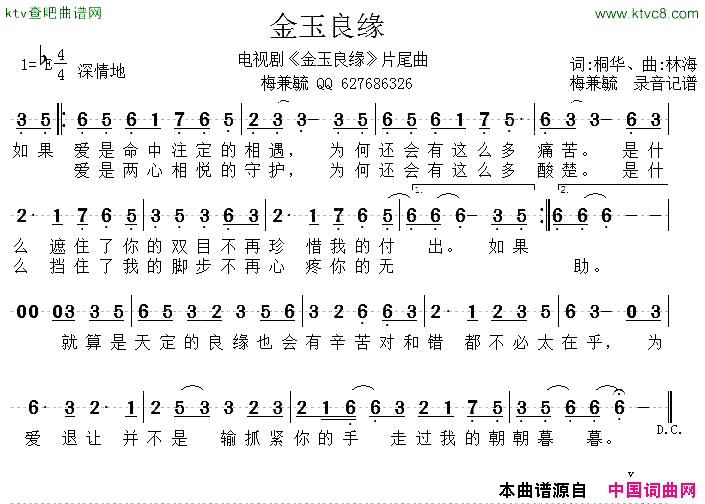 ktv查吧曲谱网
金玉良缘
www.ktvc8.com
1=♭E 4/4 深情地
电视剧《金玉良缘》片尾曲
梅兼毓 QQ 627686326
词:桐华、曲:林海
梅兼毓 录音记谱
3 5 6 5 6 1 7 6 5 2 3 3 — 3 5 6 5 6 1 7 6 5 6 3 3 — 6 3
如果 爱是命中注定的相遇， 为何还会有这么多 痛苦。 是什
爱是两心相悦的守护， 为何还会有这么多 酸楚。 是什
1. 2.
2· 1 7 6 5 3 5 3 6 3 2· 1 7 6 5 6 6 6 — 3 5 6 6 6 — —
么 遮住了你的双目不再珍 惜我的付 出。 如果
么 挡住了我的脚步不再心 疼你的无 助。
0 0 0 3 3 5 6 5 3 2 3 3 3 5 6 2 1 6 2· 1 2 3 5 3 — 0 3
就算是天定的良缘也会有辛苦对和错 都不必太在乎， 为
6· 3 2· 1 2 5 3 3 2 3 2 1 6 6 3 2 1 7 5 3 5 6 6 6 —
爱 退让 并不是 输抓紧你的手 走过我的朝朝暮暮。
D.C.
本曲谱源自 中国词曲网